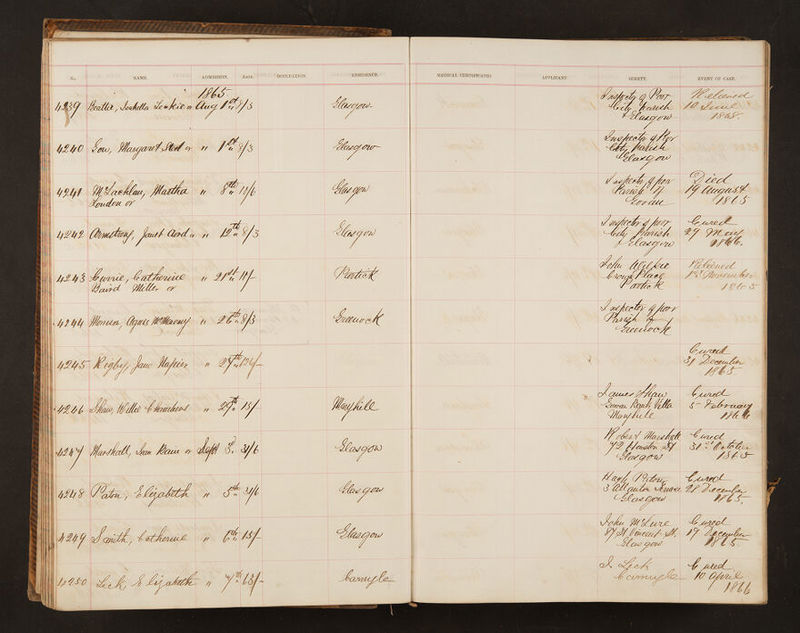 No. NAME. ADMISSION. RATE. OCCUPATION. RESIDENCE. MEDICAL CERTIFICATES APPLICANT. SURETY. EVENT OF CASE.
1865
4239 Beattie, Isabella or Aug 1st 8/3 Glasgow Inspector of Poor City Parish Glasgow Relieved 10 1865
4240 Low, Margaret or " 1st 8/3 Glasgow Inspector of Poor City Parish Glasgow
4241 McLachlan, Martha " 8th 11/6 Glasgow Inspector of Poor Parish of Govan Died 19 August 1865
Loudon or
4242 Armstrong, Janet or " 12th 8/3 Glasgow Inspector of Poor City Parish Glasgow Cured 29 May 1866.
4243 Currie, Catherine " 21st Partick John Place Partick Relieved 1st November 1865
Baird Miller or
4244 Agnes " 26th 8/3 Greenock Inspector of Poor Parish of Greenock
4245 Rigby, Jane Napier " 29th Cured 31 December 1865
4246 Shaw, Carruthers " 29th 15/- Maryhill James Shaw Villa Maryhill Cured 5 February 1866
4247 Marshall, Ann Bain or Sept 2 31/6 Glasgow Robert Marshall 72 St Glasgow Cured 31st October 1865
4248 Paton, Elizabeth " 5th 31/6 Glasgow Hugh Paton 3 Glasgow Cured 28 December 1865.
4249 Smith, Catherine " 6th 15/- Glasgow John McLure 87 St Vincent St. Glasgow Cured 19 December 1865
4250 Leck, Elizabeth " 7th 63/- Carmyle Leck Carmyle Cured 10 April 1866